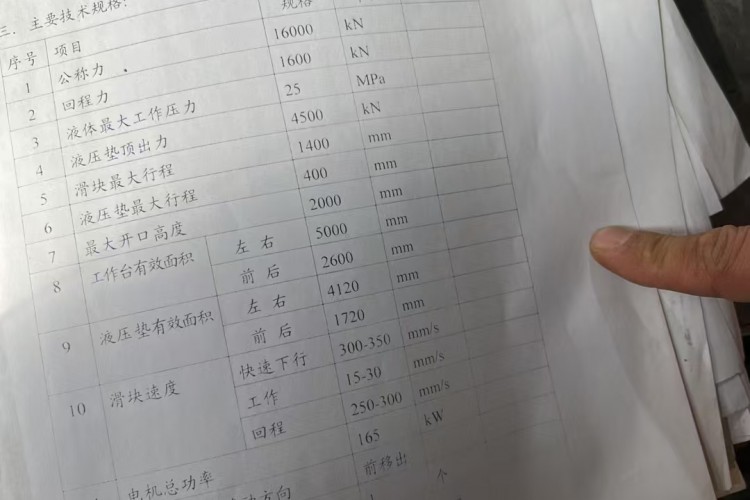 三、主要技术规格:
序号 项目 规格
1 公称力 16000 kN
2 回程力 1600 kN
3 液体最大工作压力 25 MPa
4 液压垫顶出力 4500 kN
5 滑块最大行程 1400 mm
6 液压垫最大行程 400 mm
7 最大开口高度 2000 mm
8 工作台有效面积 左右 5000 mm
前后 2600 mm
9 液压垫有效面积 左右 4120 mm
前后 1720 mm
10 滑块速度 快速下行 300-350 mm/s
工作 15-30 mm/s
回程 250-300 mm/s
电机总功率 165 kW
动方向 前移出
个